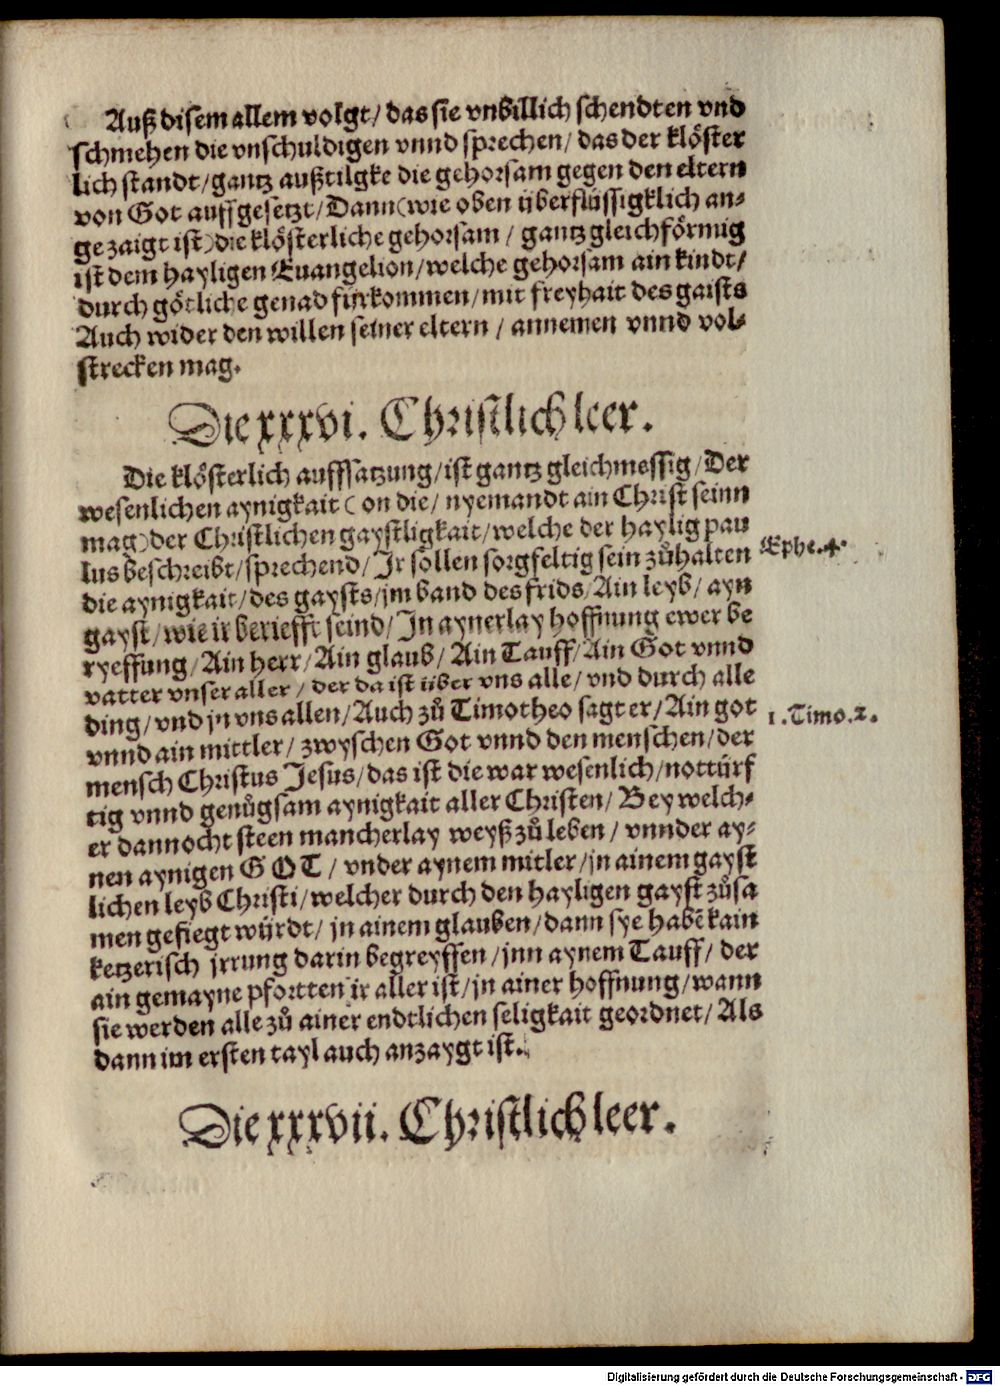 Auß disem allem volgt/ das sie vnbillich schendten vnd
schmehen die vnschuldigen vnnd sprechen/ das der klöster
lich standt/ gantz außtilgke die gehorsam gegen den eltern
von Got auffgesetzt/ Dann (wie oben überflüssigklich an-
gezaigt ist) die klösterliche gehorsam / gantz gleichförmig
ist dem hayligen Euangelion/ welche gehorsam ain kindt/
durch götliche genad fürkommen/ mit freyhait des gaists
Auch wider den willen seiner eltern / annemen vnnd vol-
strecken mag.
Die xxxvi. Christlich leer.
Die klösterlich aufffsatzung/ ist gantz gleichmessig/ Der
wesenlichen aynigkait ( on die/ nyemandt ain Christ seinn
mag) der Christlichen gaystligkait/ welche der haylig pau
lus beschreibt/ sprechend/ Jr sollen sorgfeltig sein zůhalten
Ephe. 4.
die aynigkait/ des gaysts/ jm band des frids/ Ain leyb/ ayn
gayst/ wie ir beriefft seind/ Jn aynerlay hoffnung ewer be
ryeffung/ Ain herr/ Ain glaub/ Ain Tauff/ Ain Got vnnd
vatter vnser aller / der da ist über vns alle/ vnd durch alle
ding/ vnd jn vns allen/ Auch zů Timotheo sagt er/ Ain got
1. Timo. 2.
vnnd ain mittler/ zwyschen Got vnnd den menschen/ der
mensch Christus Jesus/ das ist die war wesenlich/ nottürf
tig vnnd genůgsam aynigkait aller Christen/ Bey welch-
er dannocht steen mancherlay weyß zů leben/ vnnder ay-
nen aynigen GOT / vnder aynem mitler/ jn ainem gayst
lichen leyb Christi/ welcher durch den hayligen gayst zůsa
men gefiegt würdt/ jn ainem glauben/ dann sye habē kain
ketzerisch jrrung darin begreyffen /jnn aynem Tauff/ der
ain gemayne pfortten ir aller ist/ jn ainer hoffnung/ wann
sie werden alle zů ainer endtlichen seligkait geordnet/ Als
dann im ersten tayl auch anzaygt ist.
Die xxxvii. Christlich leer.
Digitalisierung gefördert durch die Deutsche Forschungsgemeinschaft - DFG